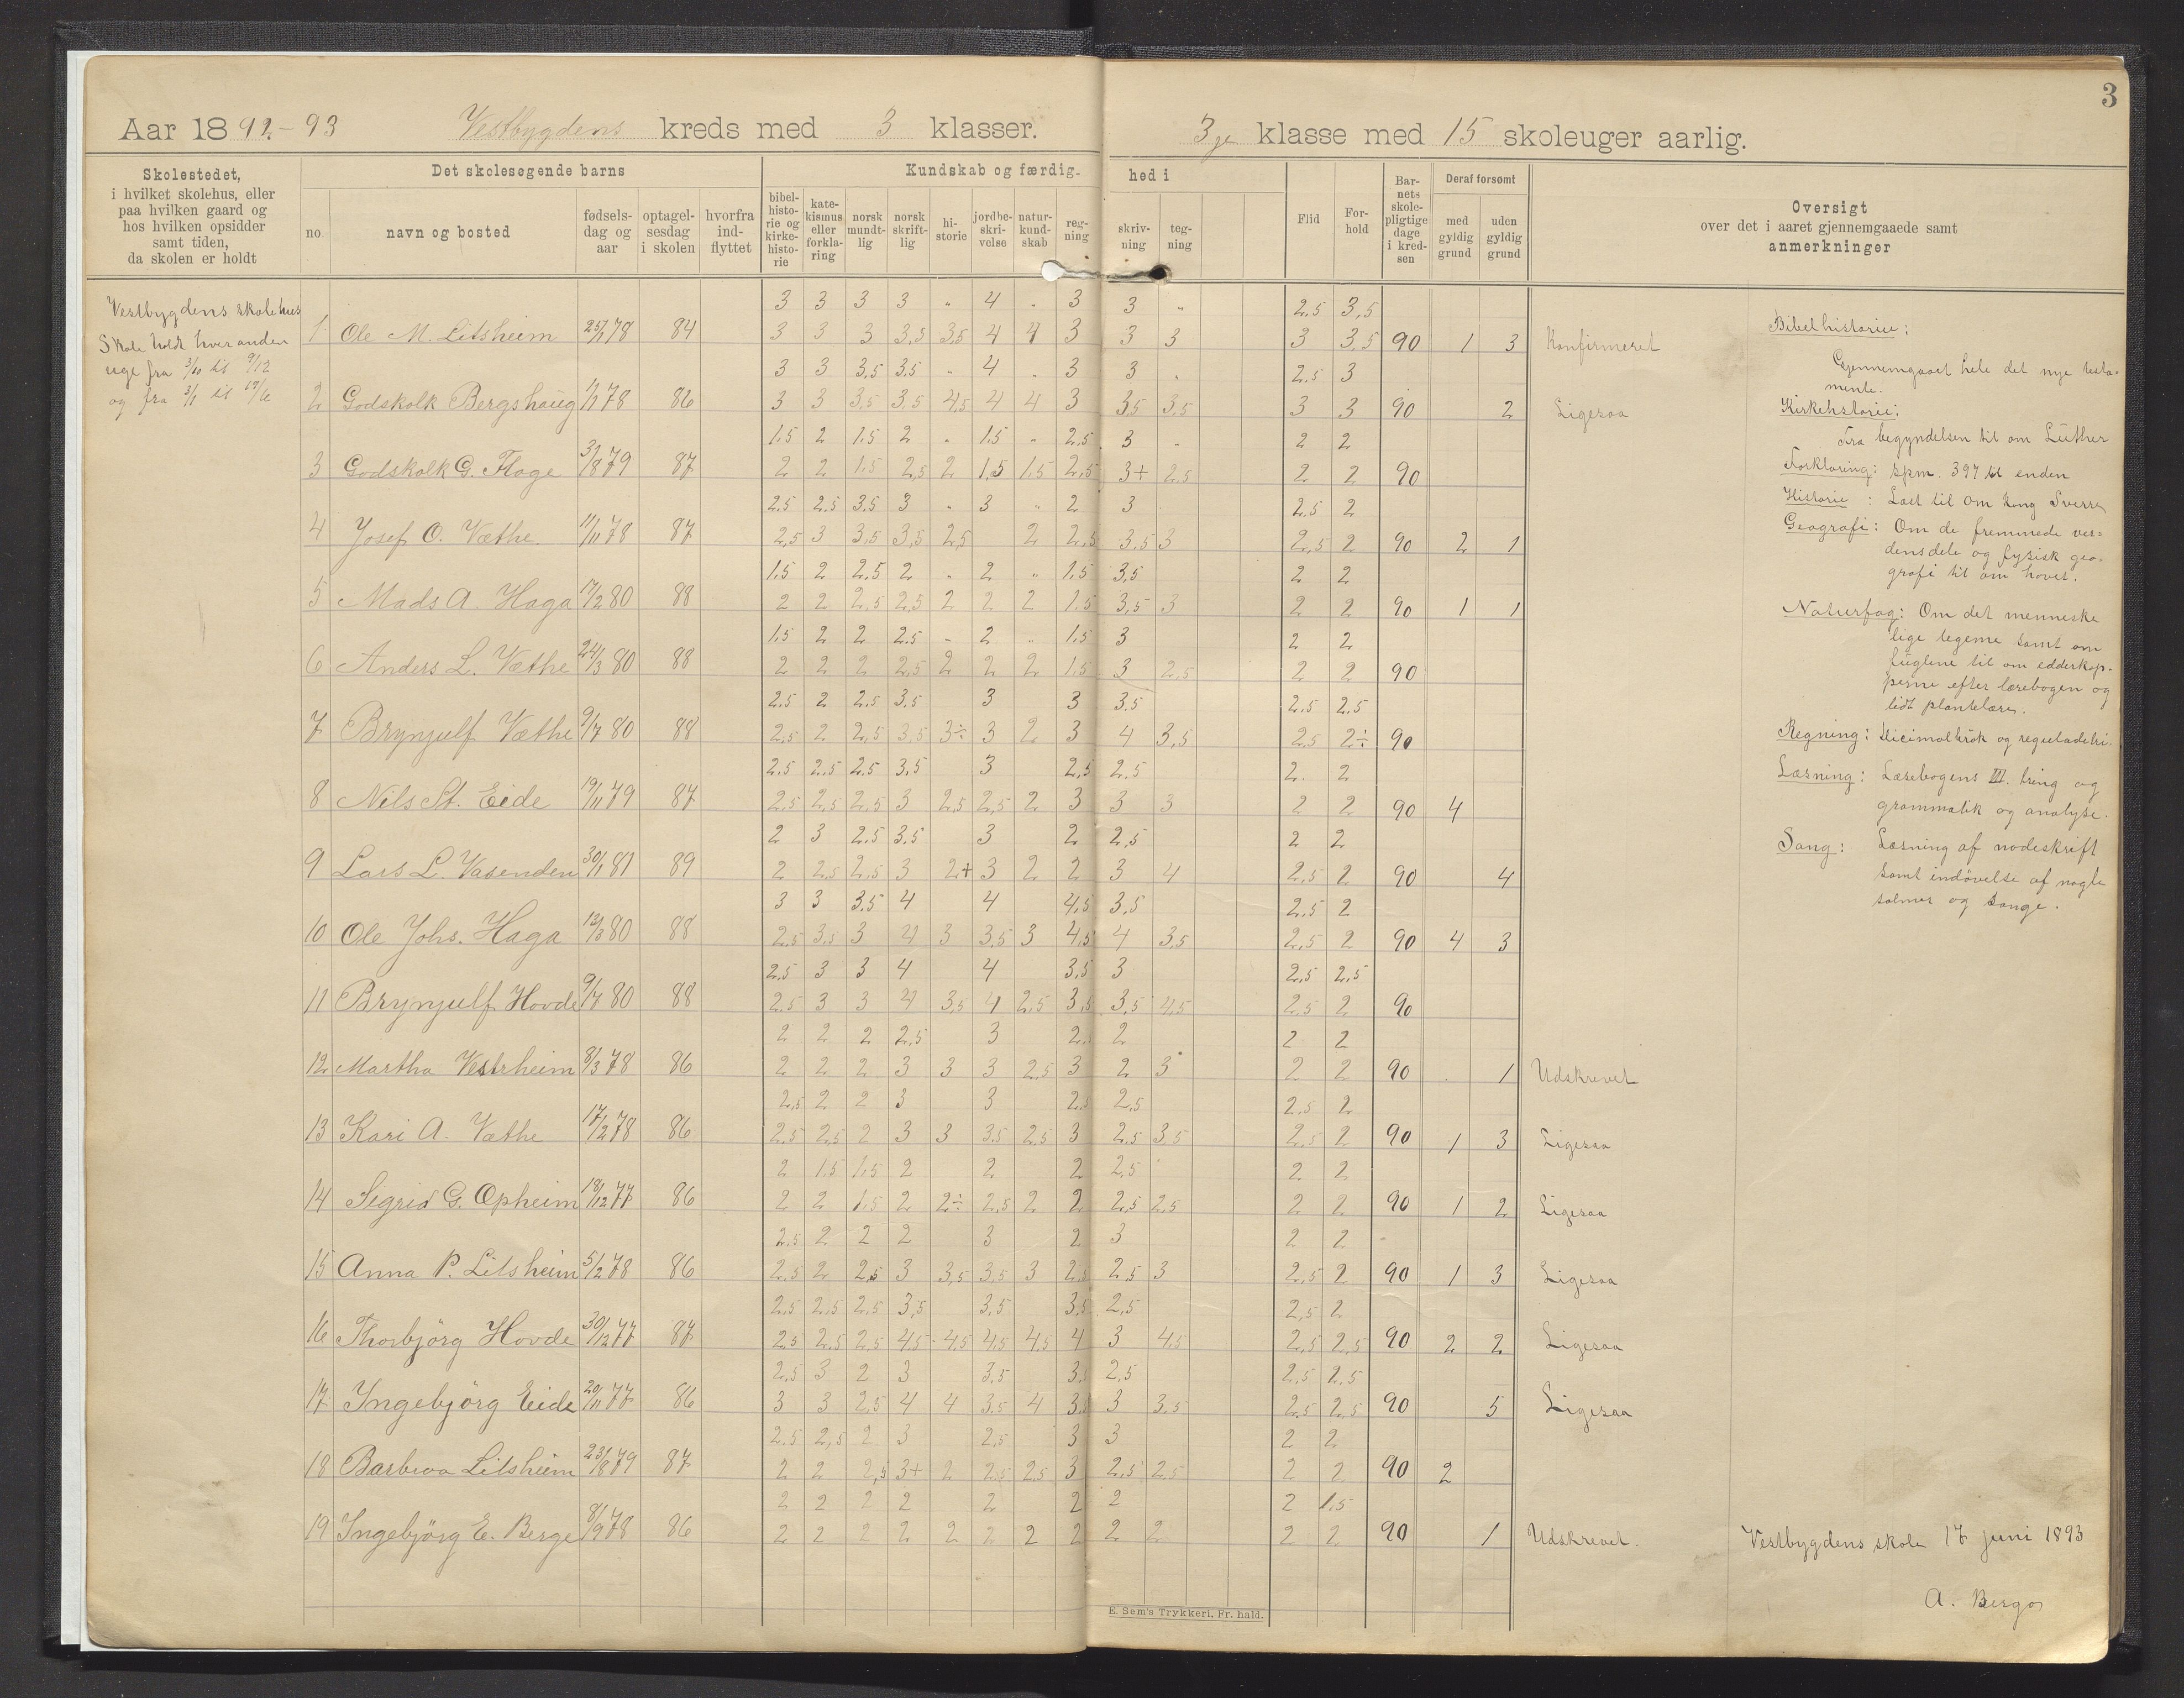 3
Aar 1892-93 Vestbygdens kreds med 3 klasser. 3je klasse med 15 skoleuger aarlig.
Skolestedet,
i hvilket skolehus, eller
paa hvilken gaard og
hos hvilken opsidder
samt tiden,
da skolen er holdt
Det skolesøgende barns
no.
navn og bosted
fødsels-
dag og
aar
optagel-
sesdag
i skolen
hvorfra
ind-
flyttet
Kundskab og færdig-
hed i
bibel-
histo-
rie og
kirke-
histo-
rie
kate-
kismus
eller
forkla-
ring
norsk
mundt-
lig
norsk
skrift-
lig
hi-
storie
jordbe-
skri-
velse
natur-
kund-
skab
reg-
ning
skriv-
ning
teg-
ning
Flid
For-
hold
Bar-
nets
skole-
pligtige
dage
i kred-
sen
Deraf forsømt
med
gyldig
grund
uden
gyldig
grund
Oversigt
over det i aaret gjennemgaaede samt
anmerkninger
Vestbygdens skolehus
Skole holdt hveranden
uge fra 3/10 til 9/12
og fra 3/1 til 17/6
3 3 3 3 " 4 " 3 3 " 2.5 3,5
1 Ole M. Litsheim 25/1 78 84 3 3 3 3,5 3,5 4 4 3 3 3 3 3,5 90 1 3 Konfirmeret
3 3 3.5 3.5 " 4 " 3 3 " 2.5 3
2 Godskalk Bergshaug 1/1 78 86 3 3 3,5 3,5 4,5 4 4 3 3,5 3,5 3 3 90 2 Ligesaa
1,5 2 1.5 2 " 1.5 " 2,5 3 " 2 2
3 Godskalk G. Flage 3/8 79 87 2 2 1,5 2,5 2 1,5 1,5 2,5 3+ 2.5 2 2 90
2.5 2.5 3.5 3 " 3 " 2 3 2.5 2
4 Josef O. Væthe 11/11 78 87 2,5 3 3,5 3,5 2,5 2 2,5 3.5 3 2,5 2 90 2 1
1.5 2 2.5 2 " 2 " 1,5 3,5 2 2
5 Mads A. Haga 17/2 80 88 2 2 2,5 2,5 2 2 2 1.5 3,5 3 2 2 90 1 1
1,5 2 2 2.5 " 2 " 1.5 3 2 2
6 Anders L. Væthe 24/3 80 88 2 2 2 2,5 2 2 2 1,5 3 2,5 2 2 90
2.5 2 2.5 3,5 3 3 3.5 2.5 2.5
7 Brynjulf Væthe 9/7 80 88 2.5 2 2,5 3,5 3÷ 3 2 3 4 3,5 2,5 2÷ 90
2.5 2.5 2.5 3,5 3 2,5 2.5 2 2
8 Nils St. Eide 19/11 79 87 2,5 2,5 2,5 3 2,5 2,5 2 3 3 3 2 2 90 4
2 3 2.5 3.5 3 2 2,5 2 2
9 Lars L. Vasenden 30/1 81 89 2 2,5 2,5 3 2+ 3 2 2 3 4 2,5 2 90 4
3 3 3.5 4 4 4,5 3.5 2.5 2
10 Ole Johs. Haga 80 88 2,5 3,5 3 4 3 3,5 3 4,5 4 3,5 2,5 2 90 4 3
2.5 3 3 4 4 3,5 3 2,5 2,5
11 Brynjulf Hovde 9/7 80 88 2.5 3 3 4 3,5 4 2,5 3,5 3,5 4,5 2.5 2 90
2 2 2 2,5 3 2. 2 2 2
12 Martha Vestrheim 8/3 78 86 2 2 2 3 3 3 2.5 3 2 3 2 2 90 1 Udskrevet
2,5 2 2 3 3 2, 2,5 2.5 2
13 Kari A. Væthe 17/12 78 86 2.5 2,5 2 3 3 3.5 2.5 3 2.5 3.5 2,5 2 90 1 3 Ligesaa
2 1.5 1.5 2 2 2 2.5 2 2
14 Sigrid G. Opheim 18/12 77 86 2 2 1,5 2 2÷ 2,5 2 2 2,5 2.5 2 2 90 1 2 Ligesaa
2.5 2 2 2 3 2 3 2 2
15 Anna P. Litsheim 5/2 78 86 2.5 2 2,5 3 3,5 3,5 3 2,5 2,5 3 2,5 2 90 1 3 Ligesaa
2.5 2,5 2,5 3,5 3,5 3,5 2,5 2,5 2
16 Thorbjörg Hovde 30/12 77 87 2.5 2.5 2,5 4,5 4,5 4,5 4,5 4 3 4,5 2,5 2,5 90 2 2 Ligesaa
2.5 3 2 3 3.5 3, 2,5 2.5 2.5
17 Ingebjörg Eide 20/11 77 86 3 3 2,5 4 4 3.5 4 3,5 3 3.5 2,5 2,5 90 5 Ligesaa
2.5 2,5 2 3 2,5 3 3 2 2
18 Barbroa Litsheim 23/8 79 87 2 2 2,5 3+ 2 2.5 2.5 3 2,5 2,5 2 2 90 2
2 2 2 2 2 2 2 2 1,5
19 Ingebjörg E. Berge 8/9 78 86 2 2 2 2 2 2 2 2 2 2 2 2 90 1 Udskrevet.
Bibelhistorie:
Gjennemgaaet hele det nye testa-
mente.
Kirkehstorie:
Fra begyndelsen til om Luther
Forklaring: Spm. 397 til enden
Historie : Læst til om kong Sverre
Geografi: Om de fremmede ver-
densdele og fysisk geo-
grafi til om havet.
Naturfag: Om det menneske
lige legeme samt om
fuglene til om edderkop-
perne efter læsebogen og
lidt plantelære.
Regning: Decimalbrøk og reguladetri.
Læsning: Læsebogens III. tring og
grammatik og analyse.
Sang: Læsning af nodeskrift
samt indövelse af nogle
salmer og sange.
Vestbygdens skole 17 juni 1893
A. Bergo
E. Sem's Trykkeri, Fr. hald.